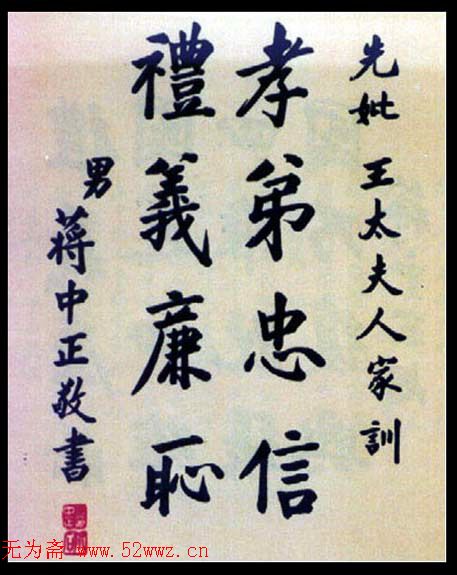 先妣 王太夫人家訓
孝弟忠信
禮義廉恥
男 蔣中正敬書
无为斋 www.52wwz.cn